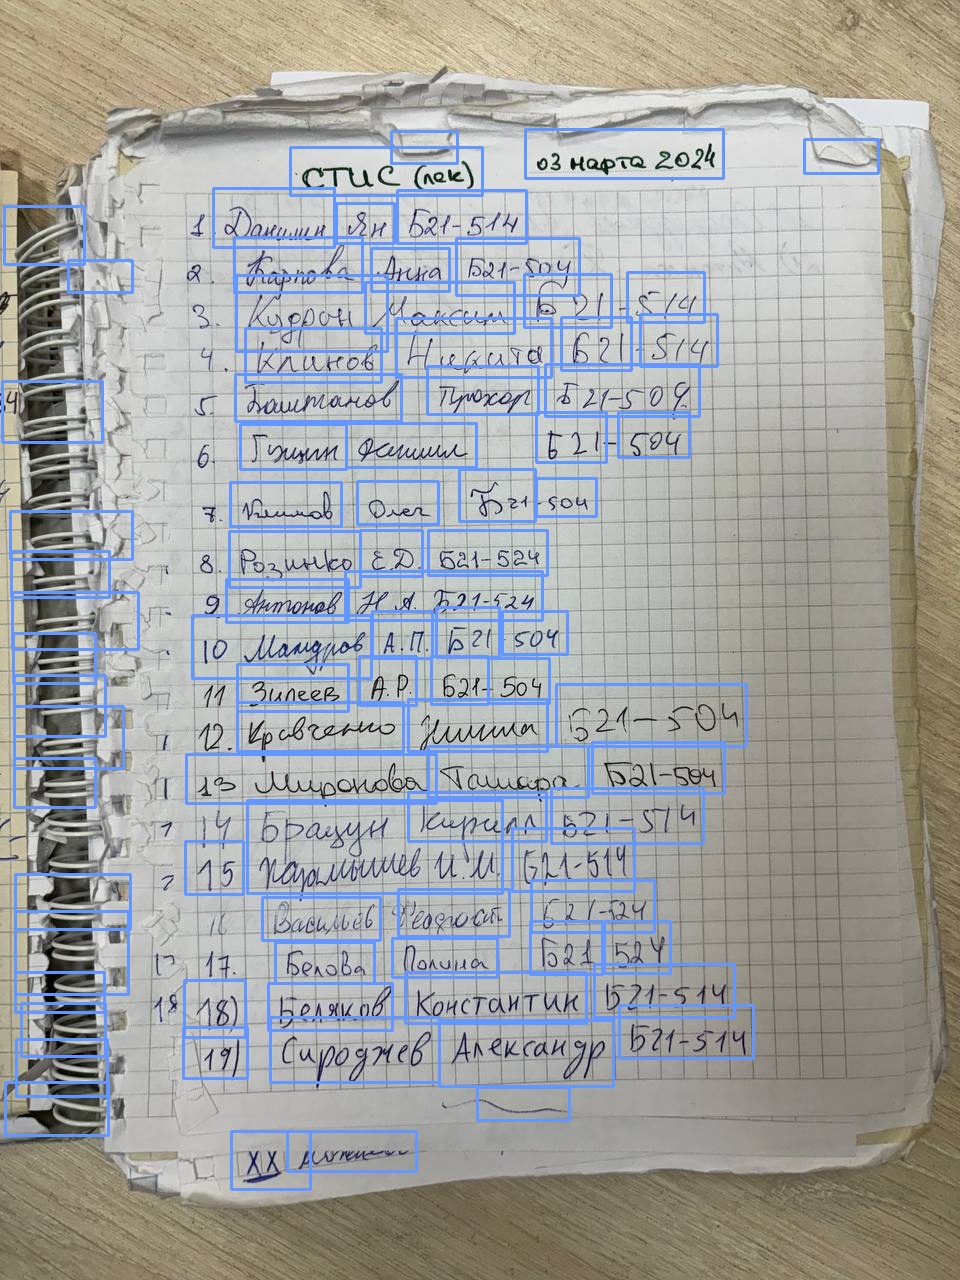 СТИС (лек) 03 марта 2024
1. Данилин Ян Б21-514
2. Карпова Анна Б21-504
3. Кудрон Максим Б21-514
4. Клинов Никита Б21-514
5. Баштанов Прохор Б21-504
6. Гущин Б21-504
7. Климов Олег Б21-504
8. Розинко Е.Д. Б21-524
9 Антонов Н.А. Б21-524
10 Мандров А.П. Б21-504
11 Зилеев А.Р. Б21-504
12. Кравченко Б21-504
13 Миронова Тамара Б21-504
14 Брацун Кирилл Б21-514
15 И.И. Б21-514
16 Васильев Феодгост Б21-524
17. Белова Полина Б21 524
18 18) Беляков Константин Б21-514
19) Сироджев Александр Б21-514
XX